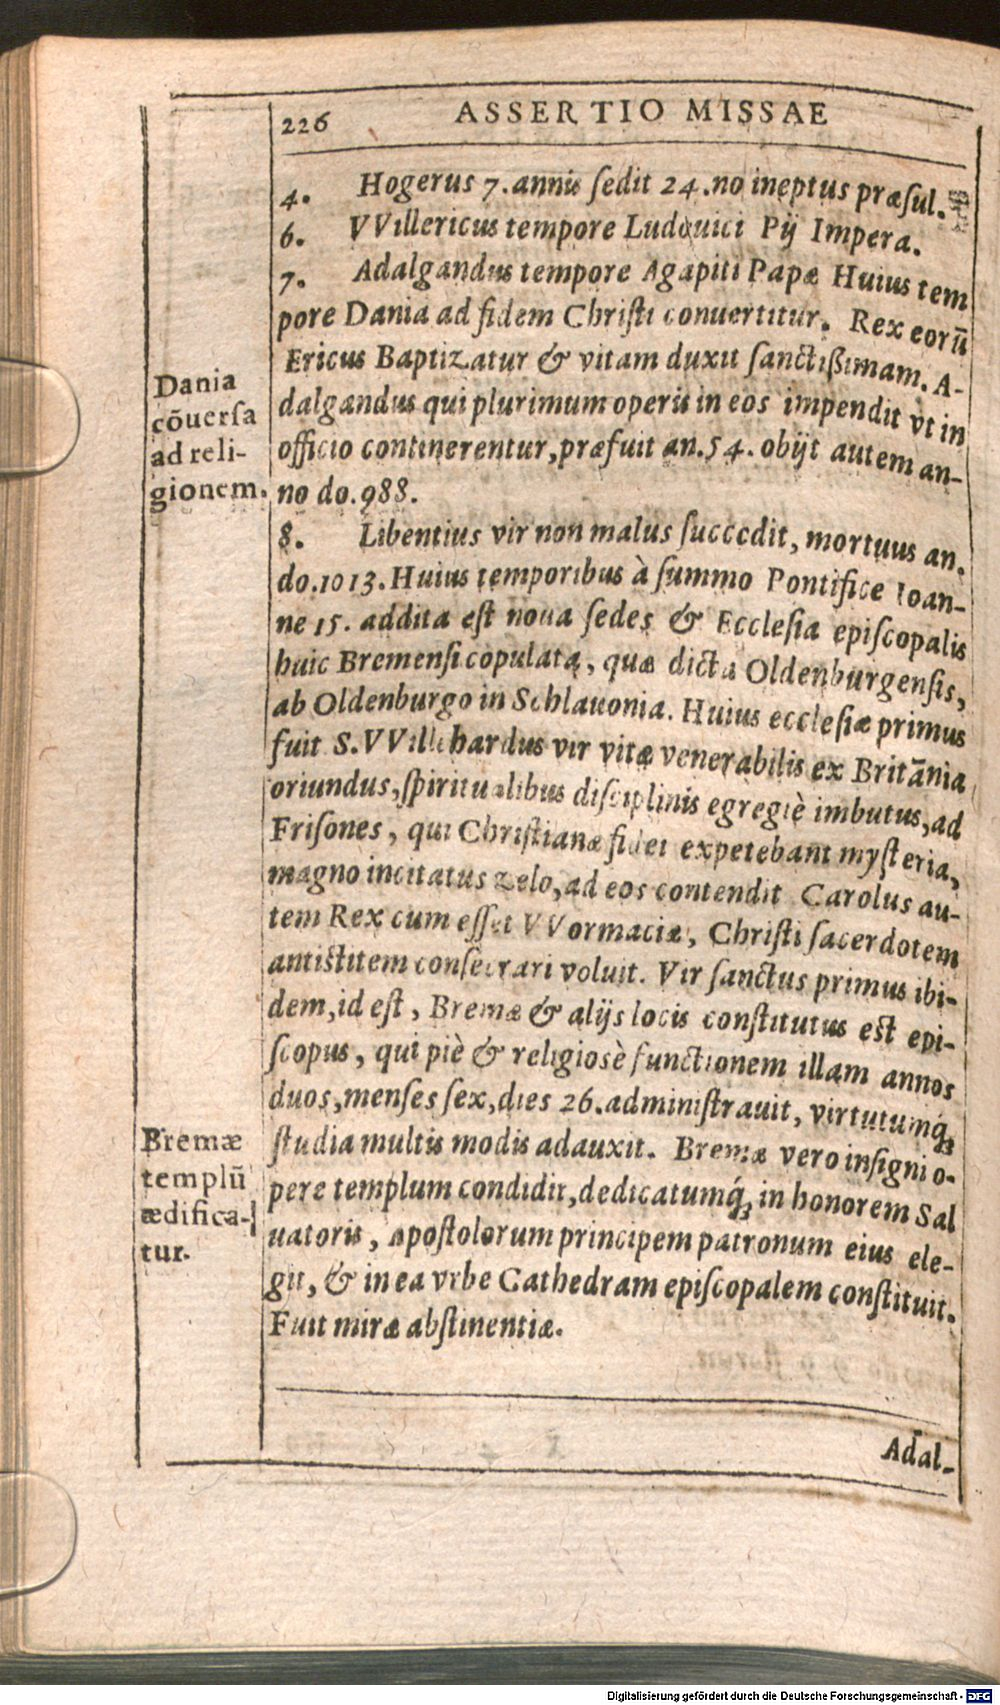 226 ASSERTIO MISSAE
4. Hogerus 7. annis ſedit 24. no ineptus præſul.
6. VVillericus tempore Ludouici Pij Impera.
7. Adalgandus tempore Agapiti Papæ Huius tem
pore Dania ad fidem Chriſti conuertitur. Rex eorū
Ericus Baptizatur & vitam duxit ſanctißimam. A-
dalgandus qui plurimum operis in eos impendit vt in
officio continerentur, præfuit an. 54. obijt autem an-
no do. 988.
Dania
cōuerſa
ad reli-
gionem.
8. Libentius vir non malus ſuccedit, mortuus an.
do. 1013. Huius temporibus à ſummo Pontifice Ioan-
ne 15. addita eſt noua ſedes & Eccleſia epiſcopalis
huic Bremenſi copulata, quæ dicta Oldenburgenſis,
ab Oldenburgo in Schlauonia. Huius eccleſiæ primus
fuit S. VVillehardus vir vitæ venerabilis ex Britānia
oriundus, ſpiritualibus diſciplinis egregiè imbutus, ad
Friſones, qui Chriſtianæ fidei expetebant myſteria,
magno incitatus zelo, ad eos contendit Carolus au-
tem Rex cum eſſet VVormaciæ, Chriſti ſacerdotem
antiſtitem conſecrari voluit. Vir ſanctus primus ibi-
dem, id eſt, Bremæ & alijs locis conſtitutus eſt epi-
ſcopus, qui piè & religioſè functionem illam annos
duos, menſes ſex, dies 26. adminiſtrauit, virtutumq́;
ſtudia multis modis adauxit. Bremæ vero inſigni o-
pere templum condidit, dedicatumq́; in honorem Sal
uatoris, apoſtolorum principem patronum eius ele-
git, & in ea vrbe Cathedram epiſcopalem conſtituit.
Fuit miræ abſtinentiæ.
Bremæ
templū
ædifica-
tur.
Adal-
Digitalisierung gefördert durch die Deutsche Forschungsgemeinschaft - DFG